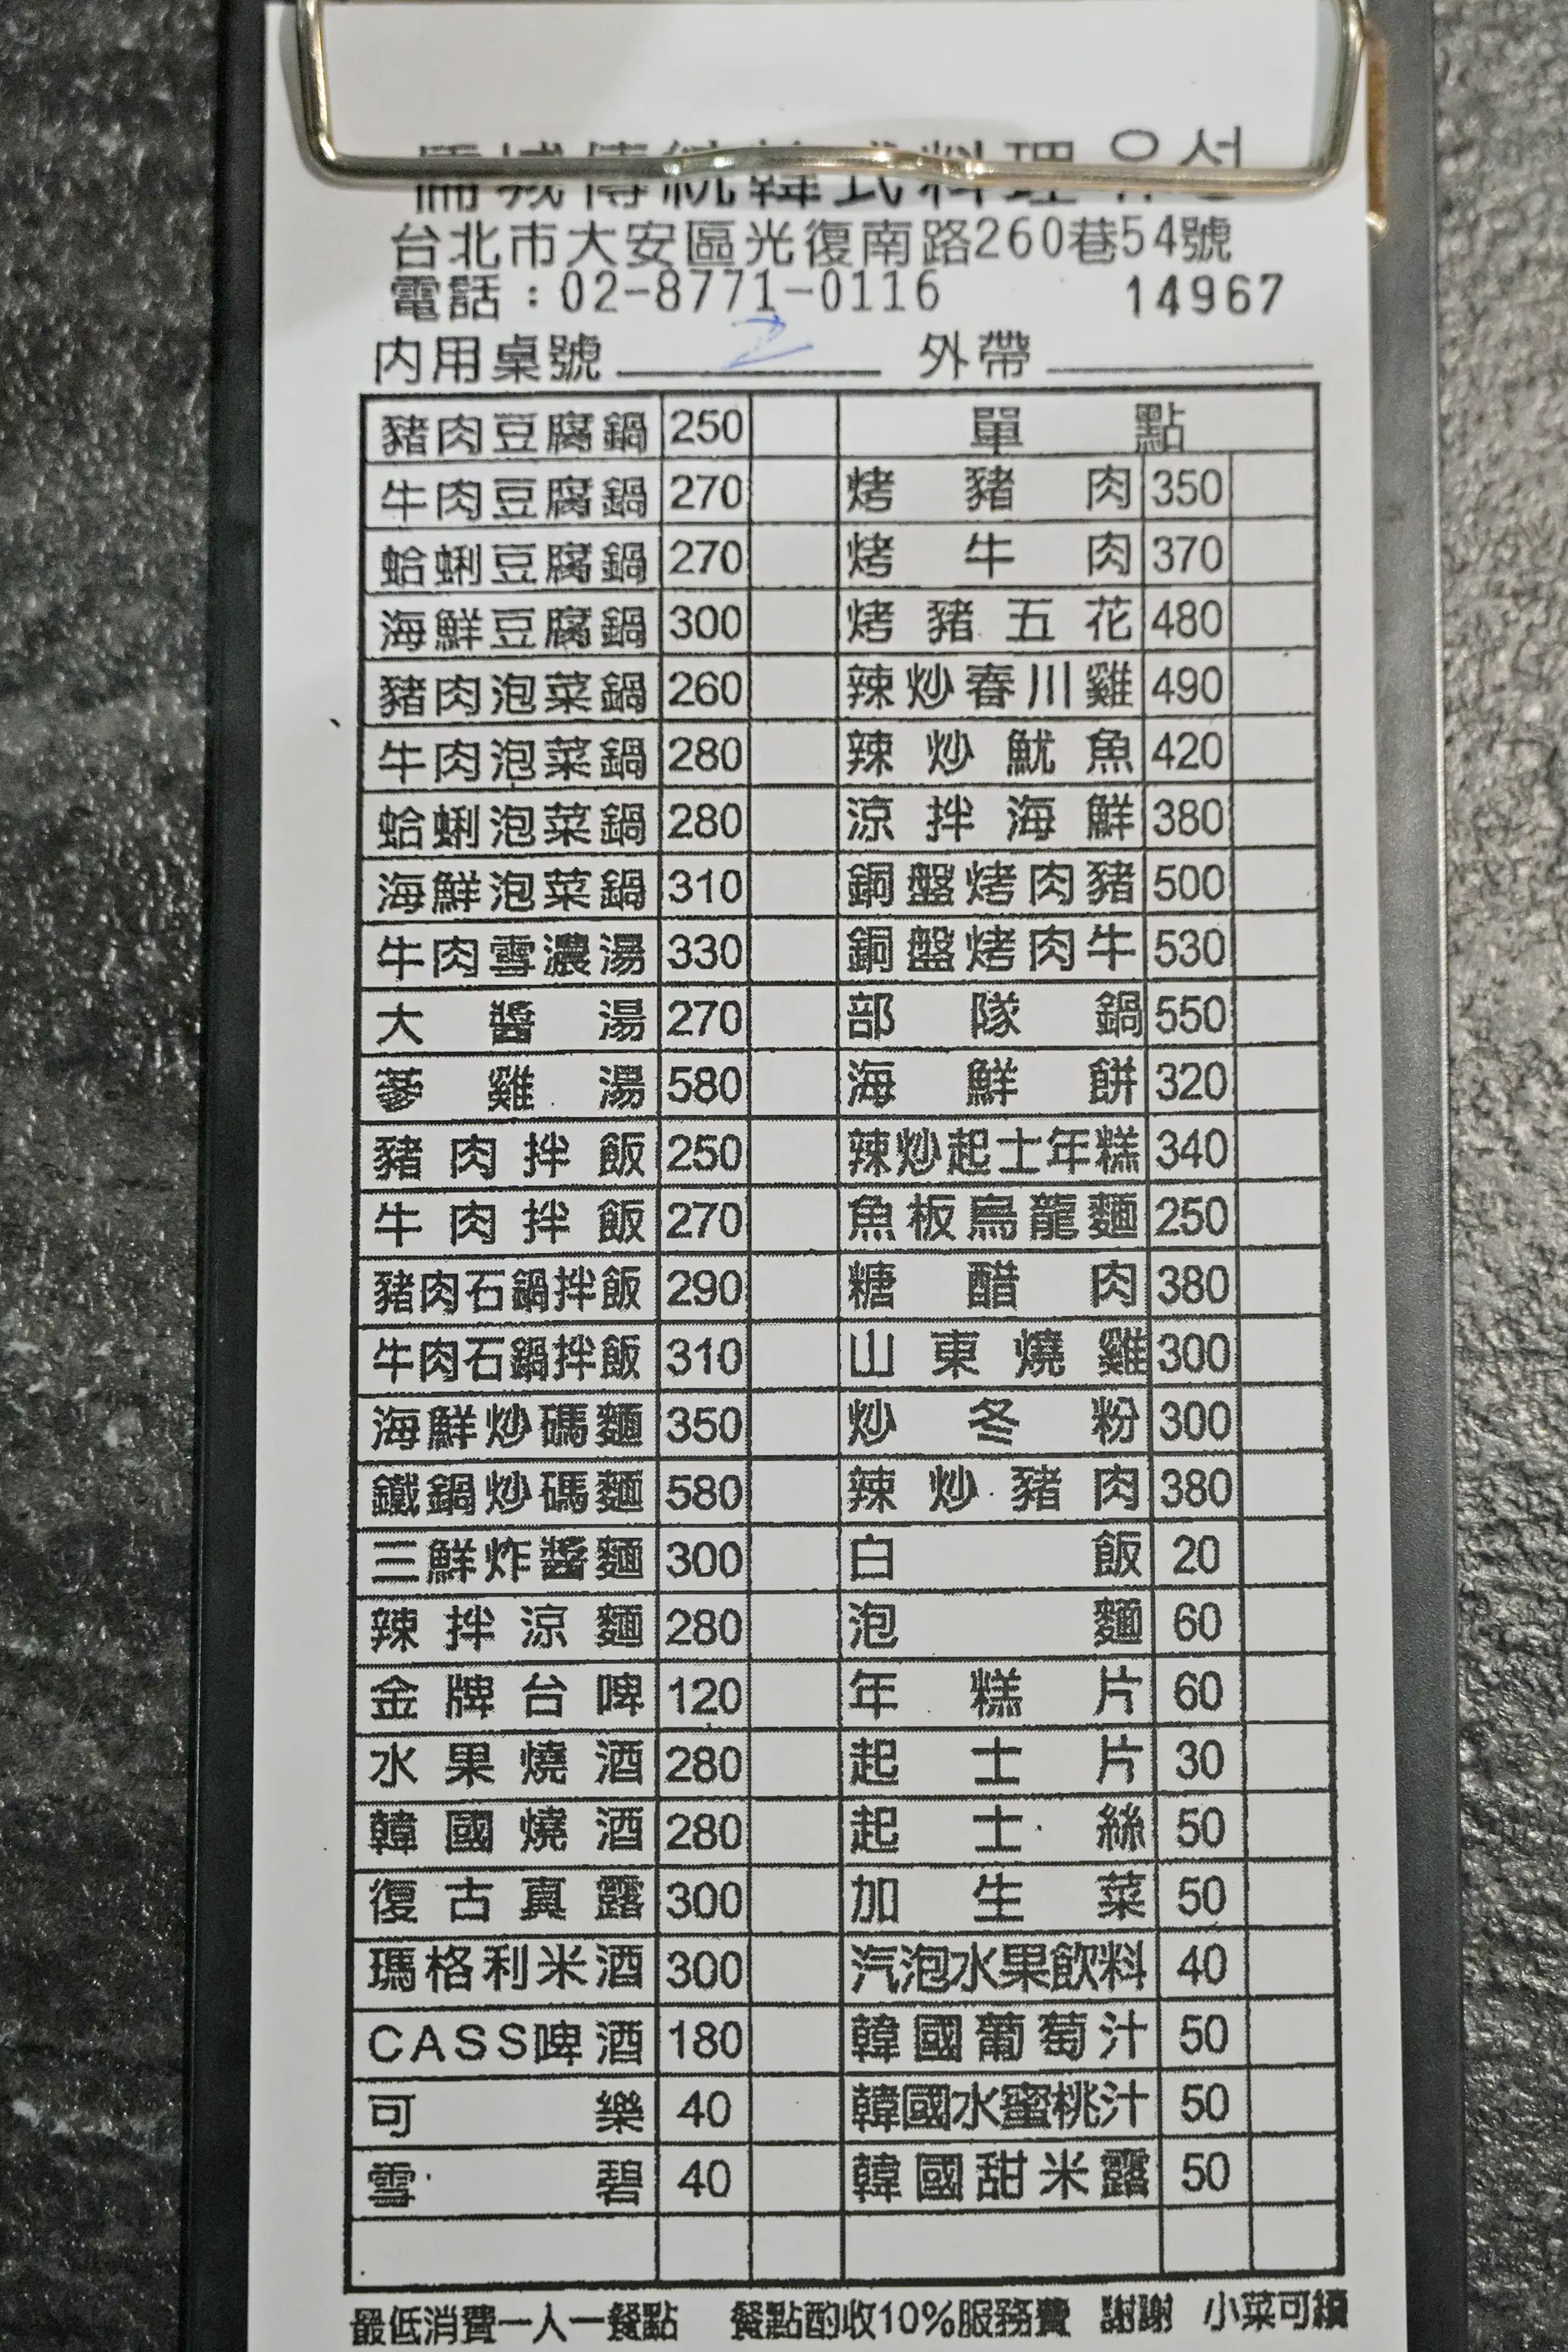 儒城傳統韓式料理 유성
台北市大安區光復南路260巷54號
電話：02-8771-0116 14967
內用桌號 2 外帶
豬肉豆腐鍋 250 單點
牛肉豆腐鍋 270 烤豬肉 350
蛤蜊豆腐鍋 270 烤牛肉 370
海鮮豆腐鍋 300 烤豬五花 480
豬肉泡菜鍋 260 辣炒春川雞 490
牛肉泡菜鍋 280 辣炒魷魚 420
蛤蜊泡菜鍋 280 涼拌海鮮 380
海鮮泡菜鍋 310 銅盤烤肉豬 500
牛肉雪濃湯 330 銅盤烤肉牛 530
大醬湯 270 部隊鍋 550
蔘雞湯 580 海鮮餅 320
豬肉拌飯 250 辣炒起士年糕 340
牛肉拌飯 270 魚板烏龍麵 250
豬肉石鍋拌飯 290 糖醋肉 380
牛肉石鍋拌飯 310 山東燒雞 300
海鮮炒碼麵 350 炒冬粉 300
鐵鍋炒碼麵 580 辣炒豬肉 380
三鮮炸醬麵 300 白飯 20
辣拌涼麵 280 泡麵 60
金牌台啤 120 年糕片 60
水果燒酒 280 起士片 30
韓國燒酒 280 起士絲 50
復古真露 300 加生菜 50
瑪格利米酒 300 汽泡水果飲料 40
CASS啤酒 180 韓國葡萄汁 50
可樂 40 韓國水蜜桃汁 50
雪碧 40 韓國甜米露 50
最低消費一人一餐點 餐點酌收10%服務費 謝謝 小菜可續